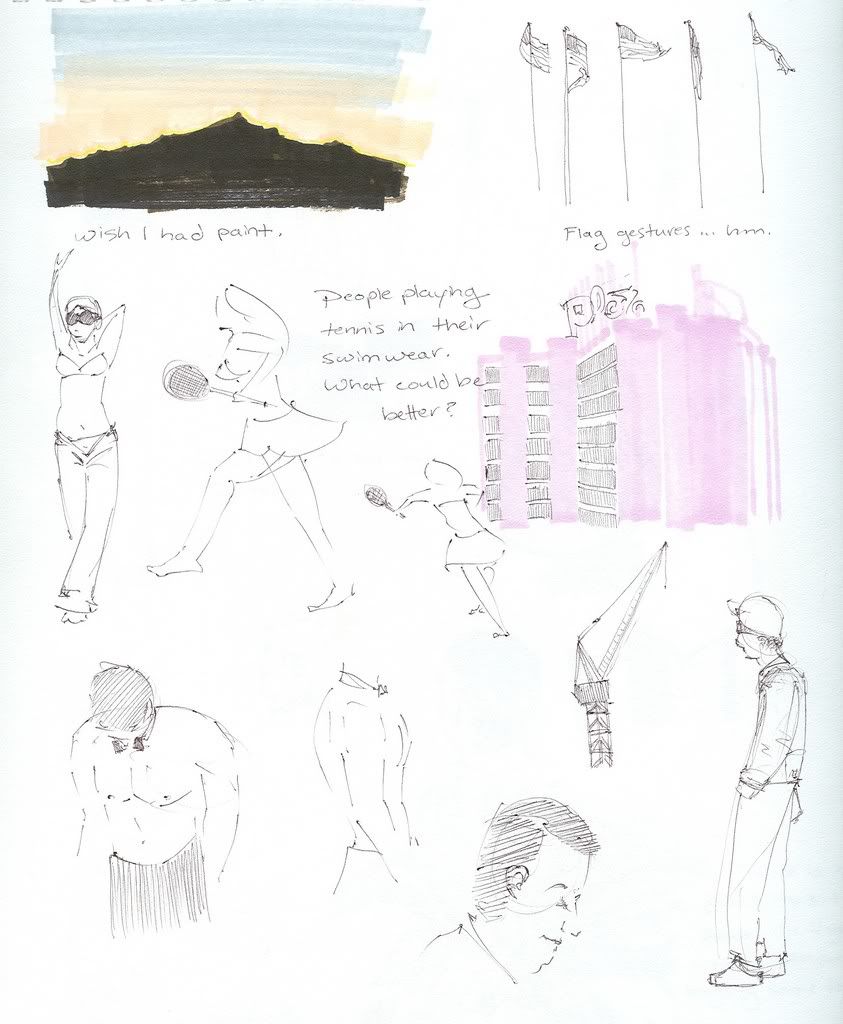 wish I had paint.
Flag gestures ... hm.
People playing
tennis in their
swimwear.
What could be
better?